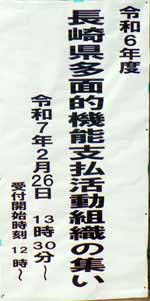 令和6年度
長崎県多面的機能支払活動組織の集い
令和7年2月26日 13時30分～
受付開始時刻 12時～